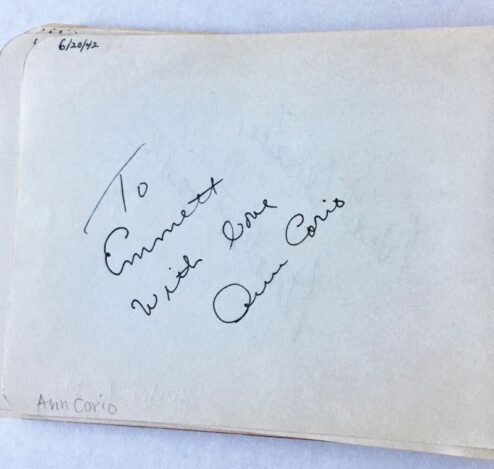 6/20/42
To
Emmett
With love
Ann Corio
Ann Corio